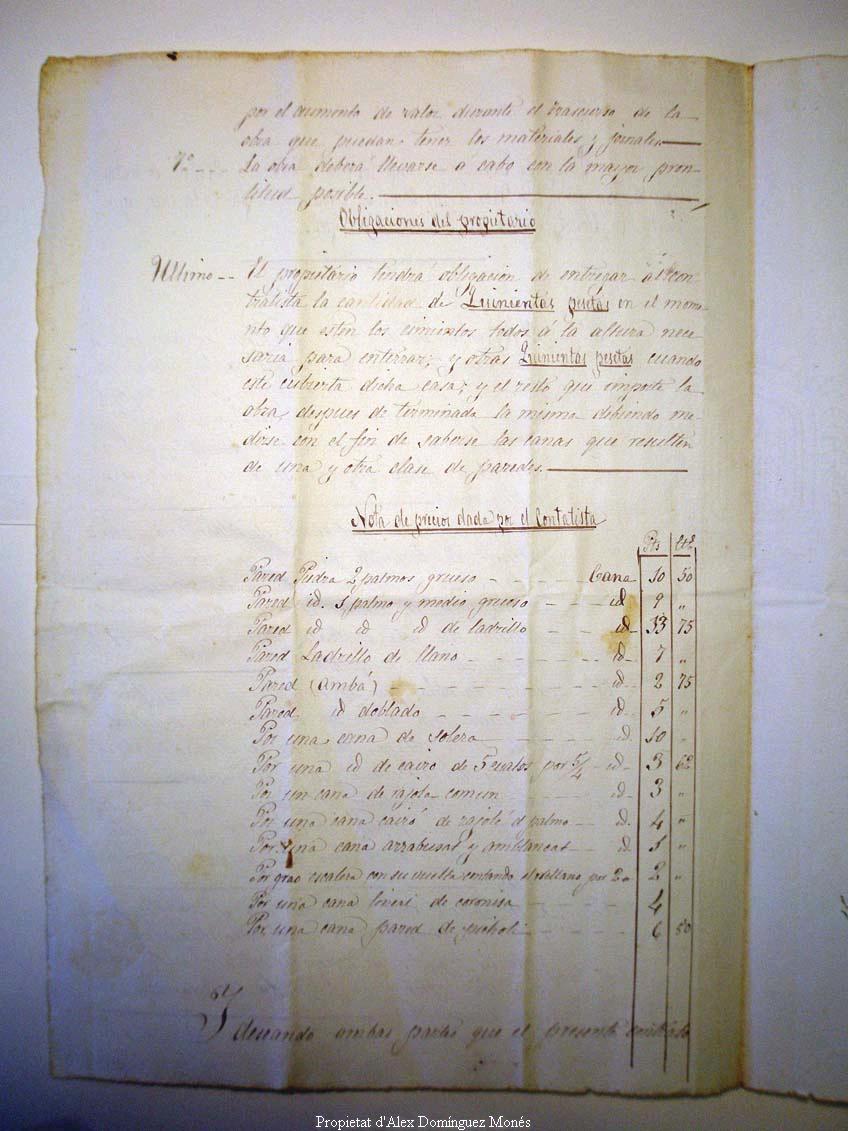 por el aumento de valor durante el trascurso de la
obra que puedan tener los materiales y jornales
7º La obra deberá llevarse á cabo con la mayor pron-
titud posible.
Obligaciones del propietario
Ultimo -- El propietario tendrá obligacion de entregar al con
tratista la cantidad de Quinientas pesetas en el mome
nto que esten los cimientos todos á la altura nece
saria para enterrar; y otras Quinientas pesetas cuando
esté cubierta dicha casa; y el resto que importe la
obra, despues de terminada la misma debiendo me-
dirse con el fin de saberse las canas que resulten
de una y otra clase de paredes.
Nota de precios dada por el Contatista
Pts Ctˢ
Pared Piedra 2 palmos grueso - - - - Cana 10 50
Pared id. 1 palmo y medio grueso - - - id 9 "
Pared id id id de ladrillo - - - - id 33 75
Pared Ladrillo de llano - - - - - - id 7 "
Pared (ambá) - - - - - - - - id 2 75
Pared id doblado - - - - - - - id 5 "
Por una cana de solera - - - - - id 10 "
Por una id de cairo de 5 cuatos por 5/4 - id 3 62
Por un cana de rajola comun - - - id 3 "
Por una cana cairó de rajole d palmo - id 4 "
Por una cana arrabusat y amblancat - - id 1 "
Por grao escalera con su vuelta contando el rellano por 2 2 "
Por una cana lineal de cornisa - - - - 4
Por una cana pared de - - - - 6 50
Y deseando ambas partes que el presente contrato